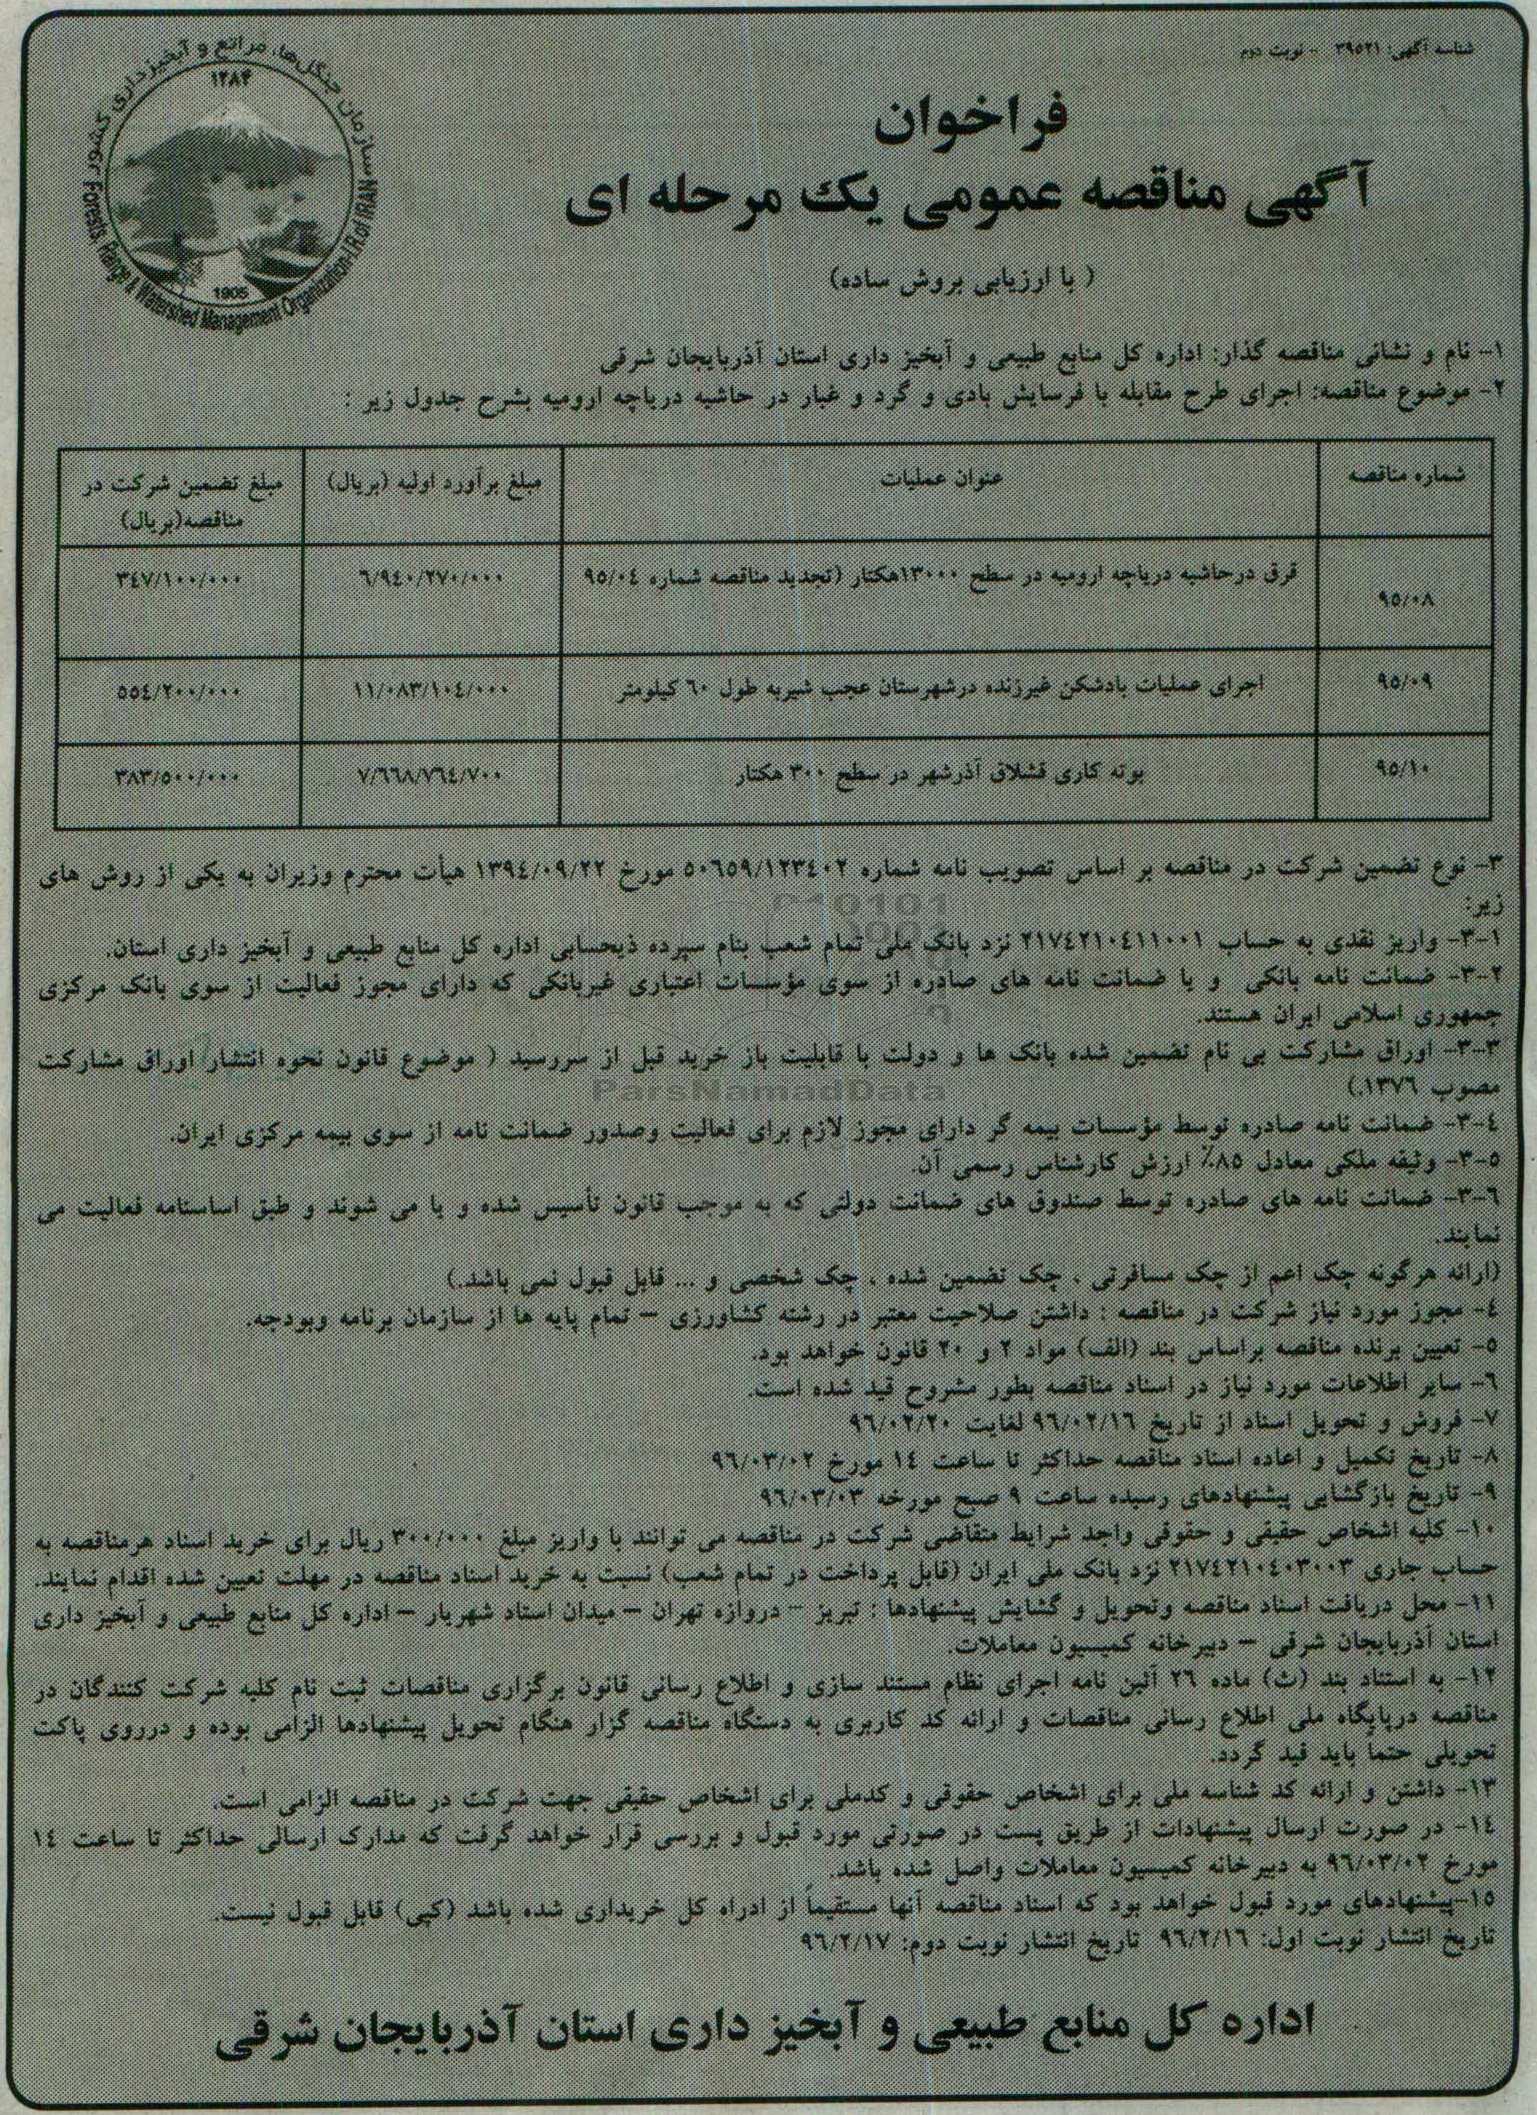 شناسه آگهی: ۳۹۵۲۱ - نوبت دوم
سازمان جنگل‌ها، مراتع و آبخیزداری کشور
۱۲۸۴
1905
Forests, Range & Watershed Management Organization-I.R.of IRAN
فراخوان
آگهی مناقصه عمومی یک مرحله ای
( با ارزیابی بروش ساده)
۱- نام و نشانی مناقصه گذار: اداره کل منابع طبیعی و آبخیز داری استان آذربایجان شرقی
۲- موضوع مناقصه: اجرای طرح مقابله با فرسایش بادی و گرد و غبار در حاشیه دریاچه ارومیه بشرح جدول زیر :
شماره مناقصه عنوان عملیات مبلغ برآورد اولیه (بریال) مبلغ تضمین شرکت در
مناقصه(بریال)
۹۵/۰۸ قرق درحاشیه دریاچه ارومیه در سطح ۱۳۰۰۰هکتار (تجدید مناقصه شماره ۹۵/۰۴ ۶/۹۴۰/۲۷۰/۰۰۰ ۳۴۷/۱۰۰/۰۰۰
۹۵/۰۹ اجرای عملیات بادشکن غیرزنده درشهرستان عجب شیربه طول ۶۰ کیلومتر ۱۱/۰۸۳/۱۰۴/۰۰۰ ۵۵۴/۲۰۰/۰۰۰
۹۵/۱۰ بوته کاری قشلاق آذرشهر در سطح ۳۰۰ هکتار ۷/۶۶۸/۷۶۴/۷۰۰ ۳۸۳/۵۰۰/۰۰۰
۳- نوع تضمین شرکت در مناقصه بر اساس تصویب نامه شماره ۵۰۶۵۹/۱۲۳۴۰۲ مورخ ۱۳۹۴/۰۹/۲۲ هیأت محترم وزیران به یکی از روش های
زیر:
۳-۱- واریز نقدی به حساب ۲۱۷۴۲۱۰۴۱۱۰۰۱ نزد بانک ملی تمام شعب بنام سپرده ذیحسابی اداره کل منابع طبیعی و آبخیز داری استان.
۳-۲- ضمانت نامه بانکی و یا ضمانت نامه های صادره از سوی مؤسسات اعتباری غیربانکی که دارای مجوز فعالیت از سوی بانک مرکزی
جمهوری اسلامی ایران هستند.
۳-۳- اوراق مشارکت بی نام تضمین شده بانک ها و دولت با قابلیت باز خرید قبل از سررسید ( موضوع قانون نحوه انتشار اوراق مشارکت
مصوب ۱۳۷۶.)
ParsNamadData
۳-۴- ضمانت نامه صادره توسط مؤسسات بیمه گر دارای مجوز لازم برای فعالیت وصدور ضمانت نامه از سوی بیمه مرکزی ایران.
۳-۵- وثیقه ملکی معادل ۸۵٪ ارزش کارشناس رسمی آن.
۳-۶- ضمانت نامه های صادره توسط صندوق های ضمانت دولتی که به موجب قانون تأسیس شده و یا می شوند و طبق اساسنامه فعالیت می
نمایند.
(ارائه هرگونه چک اعم از چک مسافرتی ، چک تضمین شده ، چک شخصی و ... قابل قبول نمی باشد.)
۴- مجوز مورد نیاز شرکت در مناقصه : داشتن صلاحیت معتبر در رشته کشاورزی – تمام پایه ها از سازمان برنامه وبودجه.
۵- تعیین برنده مناقصه براساس بند (الف) مواد ۲ و ۲۰ قانون خواهد بود.
۶- سایر اطلاعات مورد نیاز در اسناد مناقصه بطور مشروح قید شده است.
۷- فروش و تحویل اسناد از تاریخ ۹۶/۰۲/۱۶ لغایت ۹۶/۰۲/۲۰
۸- تاریخ تکمیل و اعاده اسناد مناقصه حداکثر تا ساعت ۱۴ مورخ ۹۶/۰۳/۰۲
۹- تاریخ بازگشایی پیشنهادهای رسیده ساعت ۹ صبح مورخه ۹۶/۰۳/۰۳
۱۰- کلیه اشخاص حقیقی و حقوقی واجد شرایط متقاضی شرکت در مناقصه می توانند با واریز مبلغ ۳۰۰/۰۰۰ ریال برای خرید اسناد هرمناقصه به
حساب جاری ۲۱۷۴۲۱۰۴۰۳۰۰۳ نزد بانک ملی ایران (قابل پرداخت در تمام شعب) نسبت به خرید اسناد مناقصه در مهلت تعیین شده اقدام نمایند.
۱۱- محل دریافت اسناد مناقصه وتحویل و گشایش پیشنهادها : تبریز – دروازه تهران – میدان استاد شهریار – اداره کل منابع طبیعی و آبخیز داری
استان آذربایجان شرقی – دبیرخانه کمیسیون معاملات.
۱۲- به استناد بند (ث) ماده ۲۶ آئین نامه اجرای نظام مستند سازی و اطلاع رسانی قانون برگزاری مناقصات ثبت نام کلیه شرکت کنندگان در
مناقصه درپایگاه ملی اطلاع رسانی مناقصات و ارائه کد کاربری به دستگاه مناقصه گزار هنگام تحویل پیشنهادها الزامی بوده و درروی پاکت
تحویلی حتما باید قید گردد.
۱۳- داشتن و ارائه کد شناسه ملی برای اشخاص حقوقی و کدملی برای اشخاص حقیقی جهت شرکت در مناقصه الزامی است.
۱۴- در صورت ارسال پیشنهادات از طریق پست در صورتی مورد قبول و بررسی قرار خواهد گرفت که مدارک ارسالی حداکثر تا ساعت ۱۴
مورخ ۹۶/۰۳/۰۲ به دبیرخانه کمیسیون معاملات واصل شده باشد.
۱۵-پیشنهادهای مورد قبول خواهد بود که اسناد مناقصه آنها مستقیماً از ادراه کل خریداری شده باشد (کپی) قابل قبول نیست.
تاریخ انتشار نوبت اول: ۹۶/۲/۱۶ تاریخ انتشار نوبت دوم: ۹۶/۲/۱۷
اداره کل منابع طبیعی و آبخیز داری استان آذربایجان شرقی